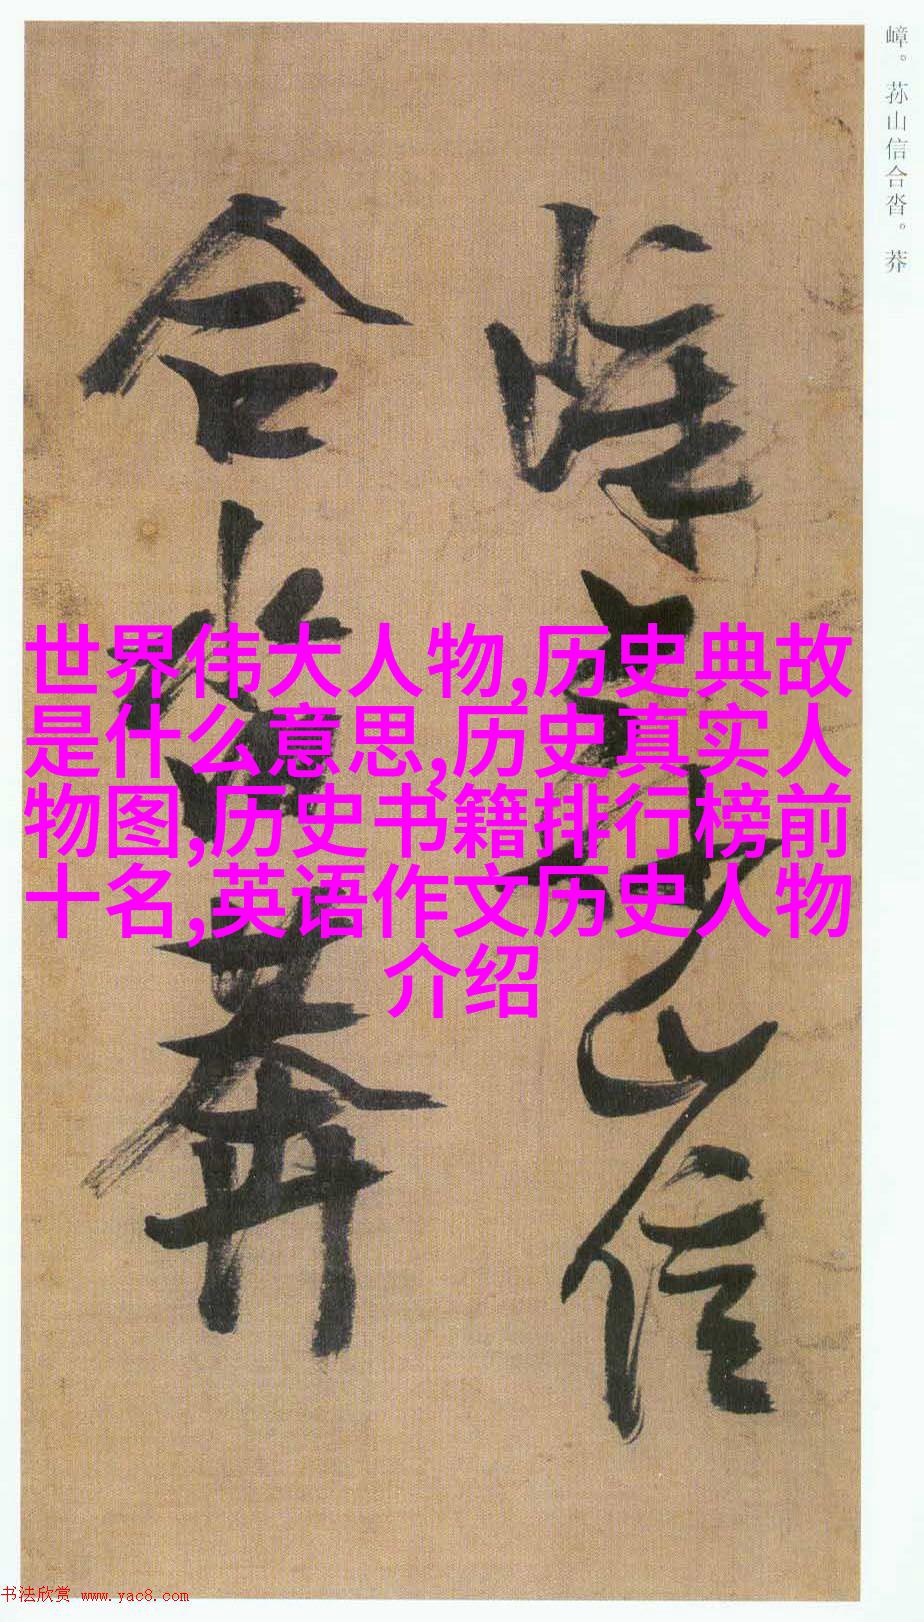 嶂。荪山信合沓。莽
嶂荪山信
合沓莽
世界伟大人物,历史典故
是什么意思,历史真实人
物图,历史书籍排行榜前
十名,英语作文历史人物
介绍
书法欣赏 www.yac8.com